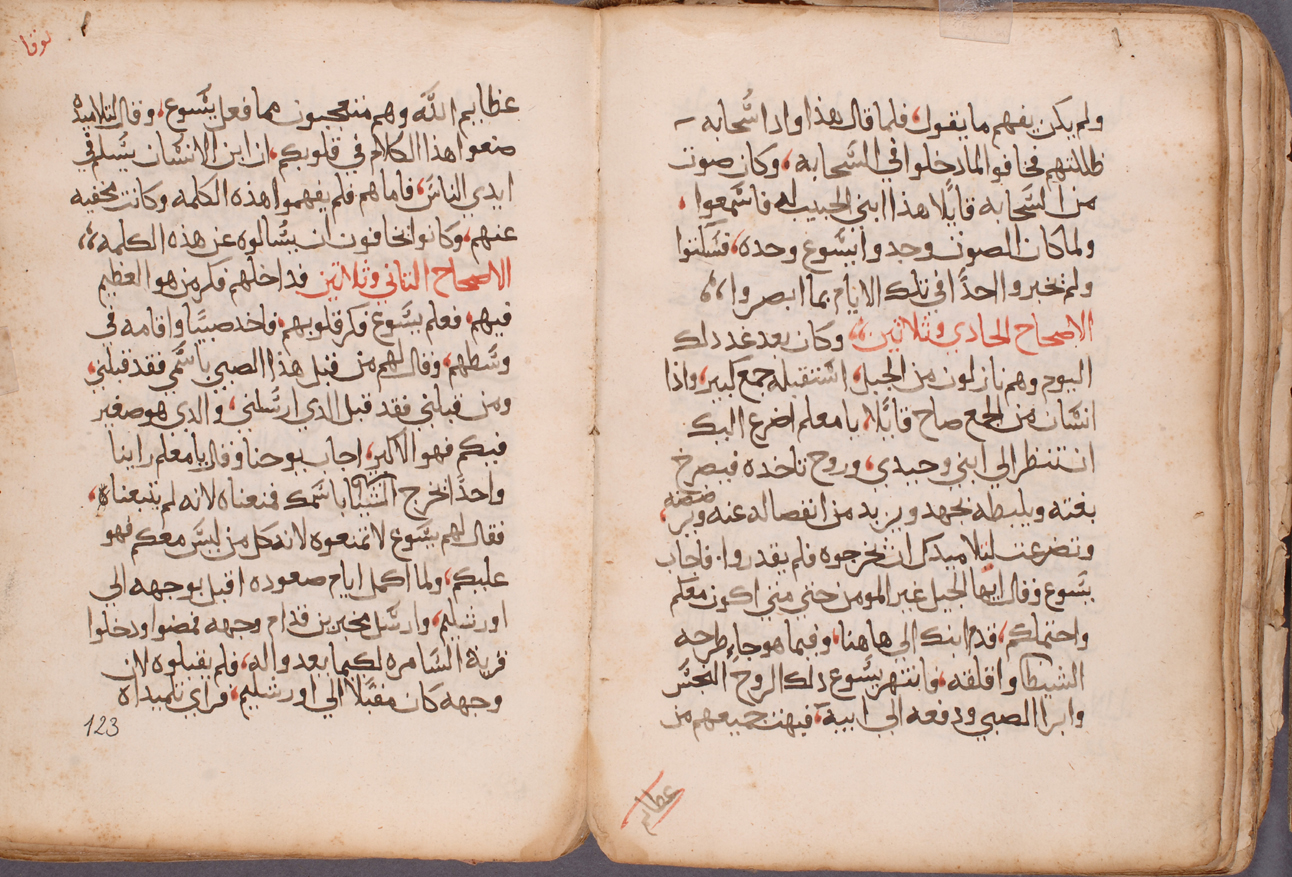 ولم يكن يفهم ما يقول، فلما قال هذا واذا سحابه
ظللتهم فخافوا لما دخلوا في السحابه، وكان صوت
من السحابه قايلا هذا ابني الحبيب له فاسمعوا،
ولما كان الصوت وجدوا يسوع وحده، فسكتوا
ولم تخبروا احدا في تلك الايام بما ابصروا
الاصحاح الحادي وثلاثين، وكان بعد غد دلك
اليوم وهم نازلون من الجبل، استقبله جمع كبير، واذا
انسان من الجمع صاح قايلا، يا معلم اضرع اليك
ان تنظر الي ابني وحيدي، وروح تاخده فيصرخ
بغته ويلبطه بجهد ويزبد من انفصاله عنه ويرضضه،
وتضرعت لتلاميدك ان يخرجوه فلم يقدروا. فاجاب
يسوع وقال ايها الجيل غير المومن حتي متي اكون معكم
واحتملكم، قدم ابنك الي هاهنا، وفيما هو جاء طرحه
الشيطا واقلقه، فانتهر يسوع دلك الروح النجس
وابرا الصبي ودفعه الي ابيه، فبهت جميعهم من
عظايم
لوقا
عظايم الله وهم متعجبون مما فعل يسوع، وقال لتلاميده
ضعوا هذا الكلام في قلوبكم، ان ابن الانسان يسلم في
ايدي الناس، فاما هم فلم يفهموا هذه الكلمه وكانت مخفيه
عنهم، وكانوا يخافون ان يسالوه عن هذه الكلمه
الاصحاح التاني وثلاتين فداخلهم فكر من هو العظيم
فيهم، فعلم يسوع فكر قلوبهم، فاخد صبيا واقامه في
وسطهم، وقال لهم من قبل هذا الصبي باسمي فقد قبلني،
ومن قبلني فقد قبل الدي ارسلني، والدي هو صغير
فيكم فهو الاكبر، اجاب يوحنا وقال يا معلم راينا
واحدا يخرج الشيا باسمك فمنعناه لانه لم يتبعناه،
فقال لهم يسوع لا تمنعوه لانه كل من ليس معكم فهو
عليكم، ولما اكمل ايام صعوده اقبل بوجهه الي
اورشليم، وارسل مخبرين قدام وجهه فمضوا ودخلوا
قرية السامره لكيما يعدوا له، فلم يقبلوه لان
وجهه كان مقبلا الي اورشليم، فراي تلميداه
123